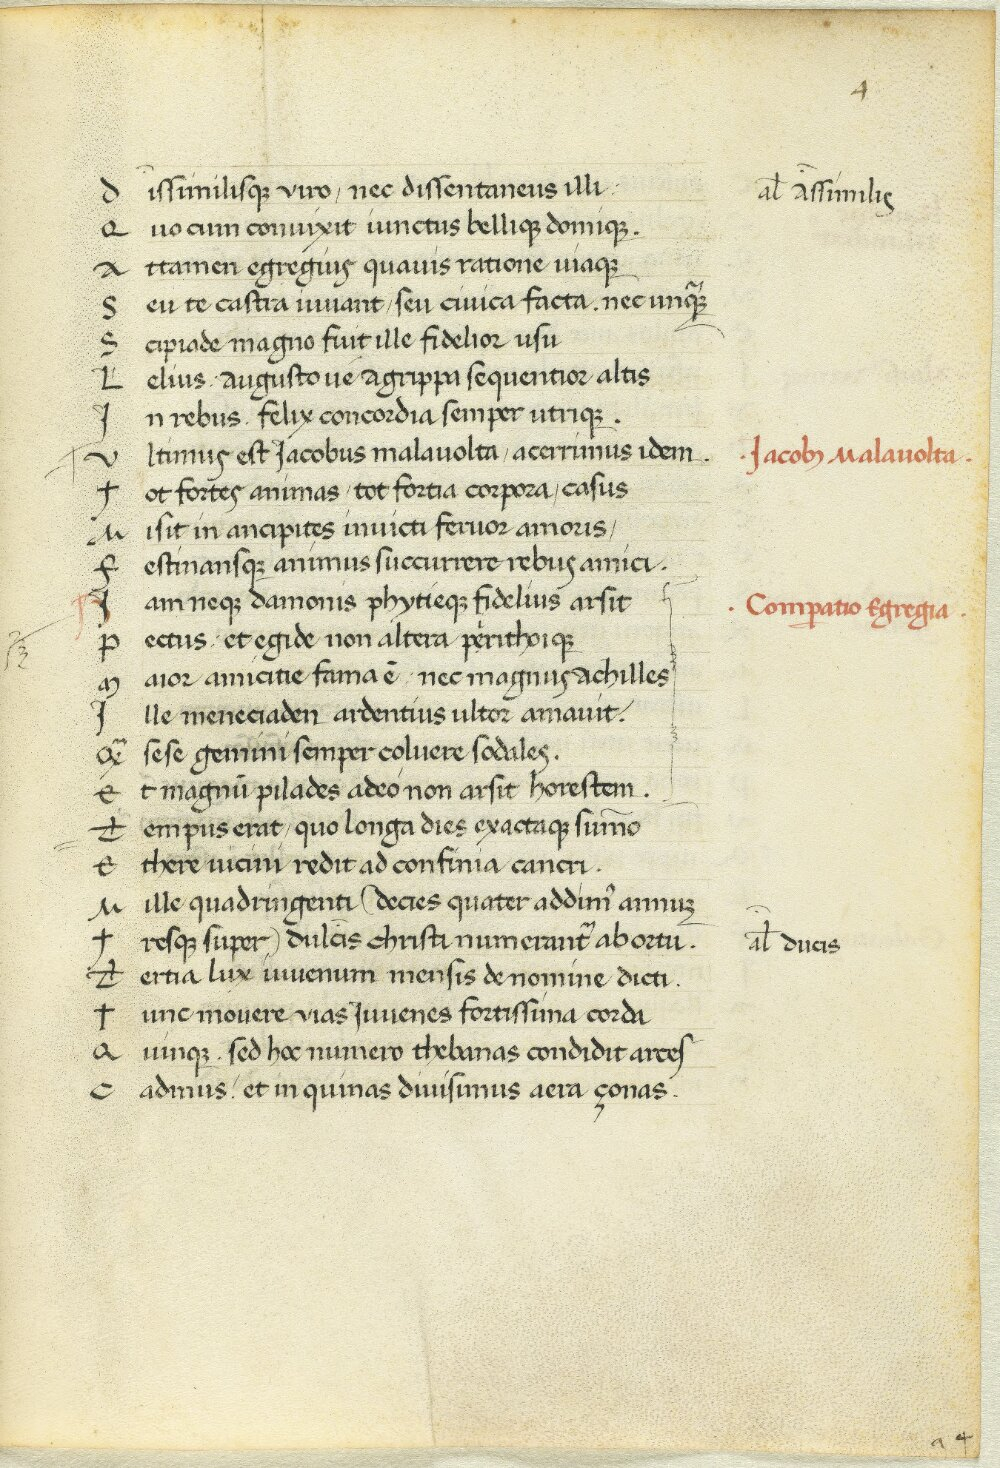 4
Dissimilisque viro, nec dissentaneus illi: al' Assimilis
Quo cum convixit iunctus bellique domique.
Attamen egregius quavis ratione viaque
Seu te castra iuvant, seu civica facta. nec unquam
Scipiade magno fuit ille fidelior usu
Lelius. Augusto ve Agrippa sequentior altis
In rebus. felix concordia semper utrique.
Ultimus est Jacobus malavolta, acerrimus idem. . Jacobus Malavolta .
Tot fortes animas, tot fortia corpora, casus
Misit in ancipites invicti fervor amoris,
Festinansque animus succurrere rebus amici.
Jam neque damonis phytieque fidelius arsit . Comparatio Egregia .
Pectus. et egide non altera perithoique
Maior amicitie fama ē. nec magnus achilles
Ille meneciaden ardentius ultor amavit.
sese gemini semper coluere sodales.
Et magnū pilades adeo non arsit horestem.
Tempus erat, quo longa dies exactaque summo
Ethere vicini redit ad confinia cancri.
Mille quadringenti (decies quater addimus annum
Tresque super) dulcis christi numerantur ab ortu. al' ducis
Tertia lux iuvenum mensis de nomine dicti.
Tunc movere vias Juvenes fortissima corda
Quinque. sed hoc numero thebanas condidit arces
Cadmus. et in quinas divisimus aera çonas.
a 4